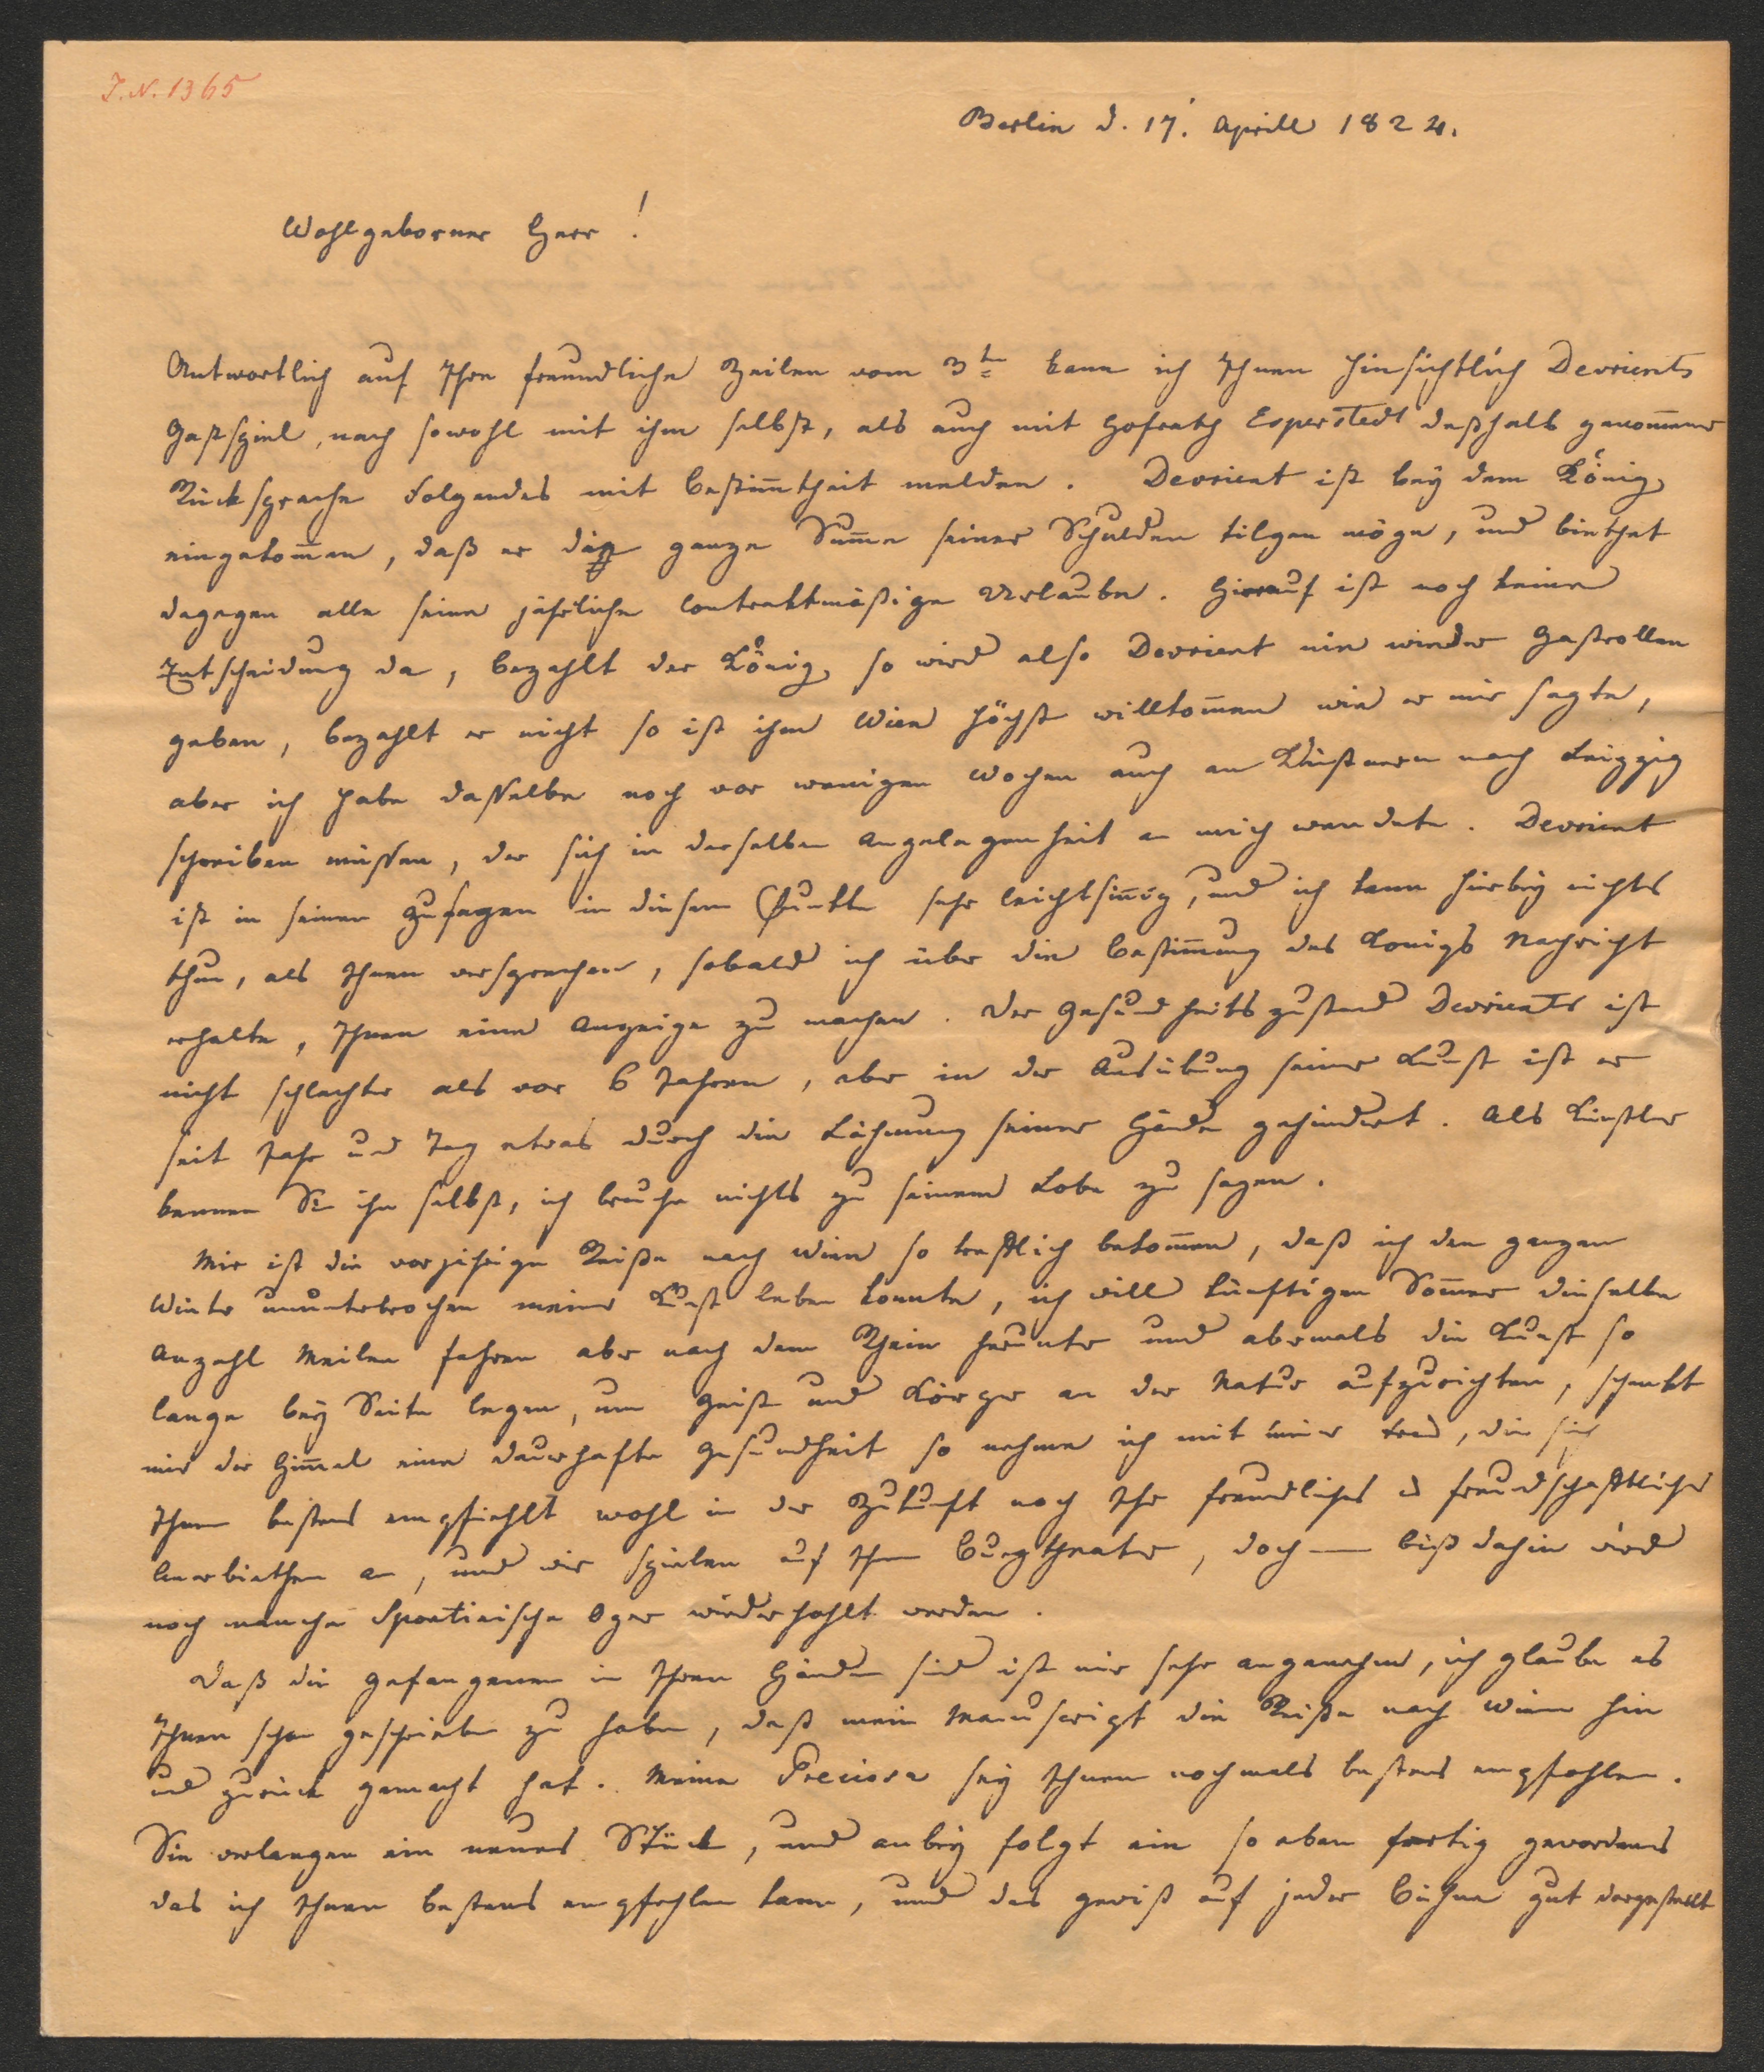 J.N. 1365
Berlin d. 17. Aprill 1824.
Wohlgeborner Herr!
Antwortlich auf Ihre freundliche Zeilen vom 3tn kann ich Ihnen hinsichtlich Devrients
Gastspiel, nach sowohl mit ihm selbst, als auch mit Hofrath Esperstedt deßhalb genom̄ener
Rücksprache Folgendes mit Bestim̄theit melden. Devrient ist bey dem König
eingekom̄en, daß er die ganze Sum̄e seiner Schulden tilgen möge, und biethet
dagegen alle seine jährliche contraktmäßige Urlaube. Hierauf ist noch keine
Entscheidung da, bezahlt der König, so wird also Devrient nie wieder Gastrollen
geben, bezahlt er nicht so ist ihm Wien höchst willkom̄en wie er mir sagte,
aber ich habe dasselbe noch vor wenigen Wochen auch an Küstnern nach Leipzig
schreiben müssen, der sich in derselben Angelegenheit an mich wendete. Devrient
ist in seinen Zusagen in diesem Punkte sehr leichtsin̄ig, und ich kann hierbey nichts
thun, als Ihnen versprechen, sobald ich über die Bestim̄ung des Konigs Nachricht
erhalte, Ihnen eine Anzeige zu machen. Der Gesundheitszustand Devrients ist
nicht schlechter als vor 6 Jahren, aber in der Ausübung seiner Kunst ist er
seit Jahr und Tag etwas durch die Lähmung seiner Hände gehindert. Als Künstler
kennen Sie ihn selbst, ich brauche nichts zu seinem Lobe zu sagen.
Mir ist die vorjährige Reiße nach Wien so trefflich bekom̄en, daß ich den ganzen
Winter ununterbrochen meiner Kunst leben konnte, ich will künftigen Som̄er dieselbe
Anzahl Meilen fahren aber nach dem Rhein herunter und abermals die Kunst so
lange bey Seite legen, um Geist und Körper an der Natur aufzurichten, schenkt
mir der Him̄el eine dauerhafte Gesundheit so nehme ich mit meiner Frau, die sich
Ihnen bestens empfiehlt wohl in der Zukunft noch Ihr freundliches u freundschaftliches
Anerbiethen an, und wir spielen auf Ihrem Burgtheater, doch — biß dahin wird
noch manche Spontinische Oper wiederhohlt werden.
Daß die Gefangenen in Ihren Händen sind ist mir sehr angenehm, ich glaube es
Ihnen schon geschrieben zu haben, daß mein Manuscript die Reiße nach Wien hin
und zurück gemacht hat. Meine Preciosa sey Ihnen nochmals bestens empfohlen.
Sie verlangen ein neues Stück, und anbey folgt ein so eben fertig gewordenes
das ich Ihnen bestens empfehlen kann, und das gewiß auf jeder Bühne gut dargestellt